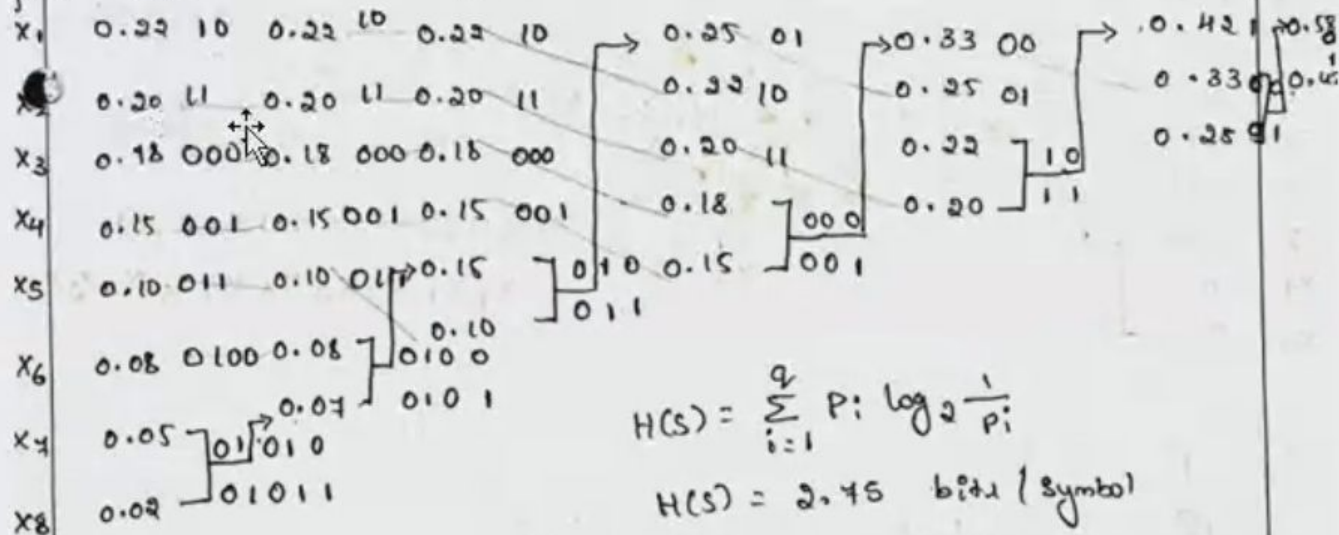 x1 0.22 10 0.22 10 0.22 10 0.25 01 0.33 00 0.42 1 0.58
0.20 11 0.20 11 0.20 11 0.22 10 0.25 01 0.33 00
x3 0.18 000 0.18 000 0.18 000 0.20 11 0.22 10 0.25 01
x4 0.15 001 0.15 001 0.15 001 0.18 000 0.20 11
x5 0.10 011 0.10 011 0.15 010 0.15 001
0.10 011
x6 0.08 0100 0.08 0100
0.07 0101
x7 0.05 01010
x8 0.02 01011
H(S) = q Σ i=1 Pi log2 1/Pi
H(S) = 2.75 bits / symbol